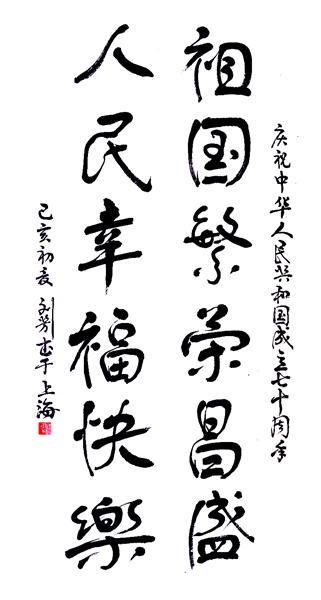 庆祝中华人民共和国成立七十周年
祖国繁荣昌盛
人民幸福快樂
己亥初夏 刘芳书于上海